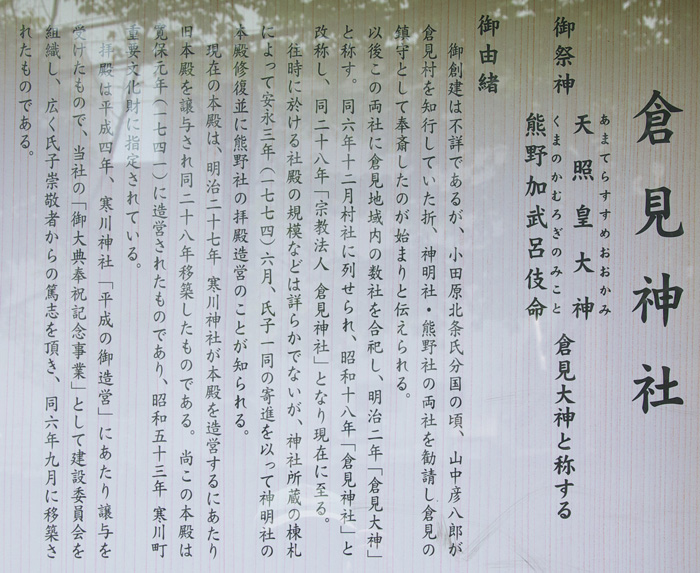 倉見神社
御祭神
あまてらすすめおおかみ
天照皇大神
くまのかむろぎのみこと
熊野加武呂伎命
倉見大神と称する
御由緒
御創建は不詳であるが、小田原北条氏分国の頃、山中彦八郎が
倉見村を知行していた折、神明社・熊野社の両社を勧請し倉見の
鎮守として奉斎したのが始まりと伝えられる。
以後この両社に倉見地域内の数社を合祀し、明治二年「倉見大神」
と称す。同六年十二月村社に列せられ、昭和十八年「倉見神社」と
改称し、同二十八年「宗教法人 倉見神社」となり現在に至る。
往時に於ける社殿の規模などは詳らかでないが、神社所蔵の棟札
によって安永三年(一七七四)六月、氏子一同の寄進を以って神明社の
本殿修復並に熊野社の拝殿造営のことが知られる。
現在の本殿は、明治二十七年 寒川神社が本殿を造営するにあたり
旧本殿を譲与され同二十八年移築したものである。尚この本殿は
寛保元年(一七四一)に造営されたものであり、昭和五十三年 寒川町
重要文化財に指定されている。
拝殿は平成四年、寒川神社「平成の御造営」にあたり譲与を
受けたもので、当社の「御大典奉祝記念事業」として建設委員会を
組織し、広く氏子崇敬者からの篤志を頂き、同六年九月に移築さ
れたものである。